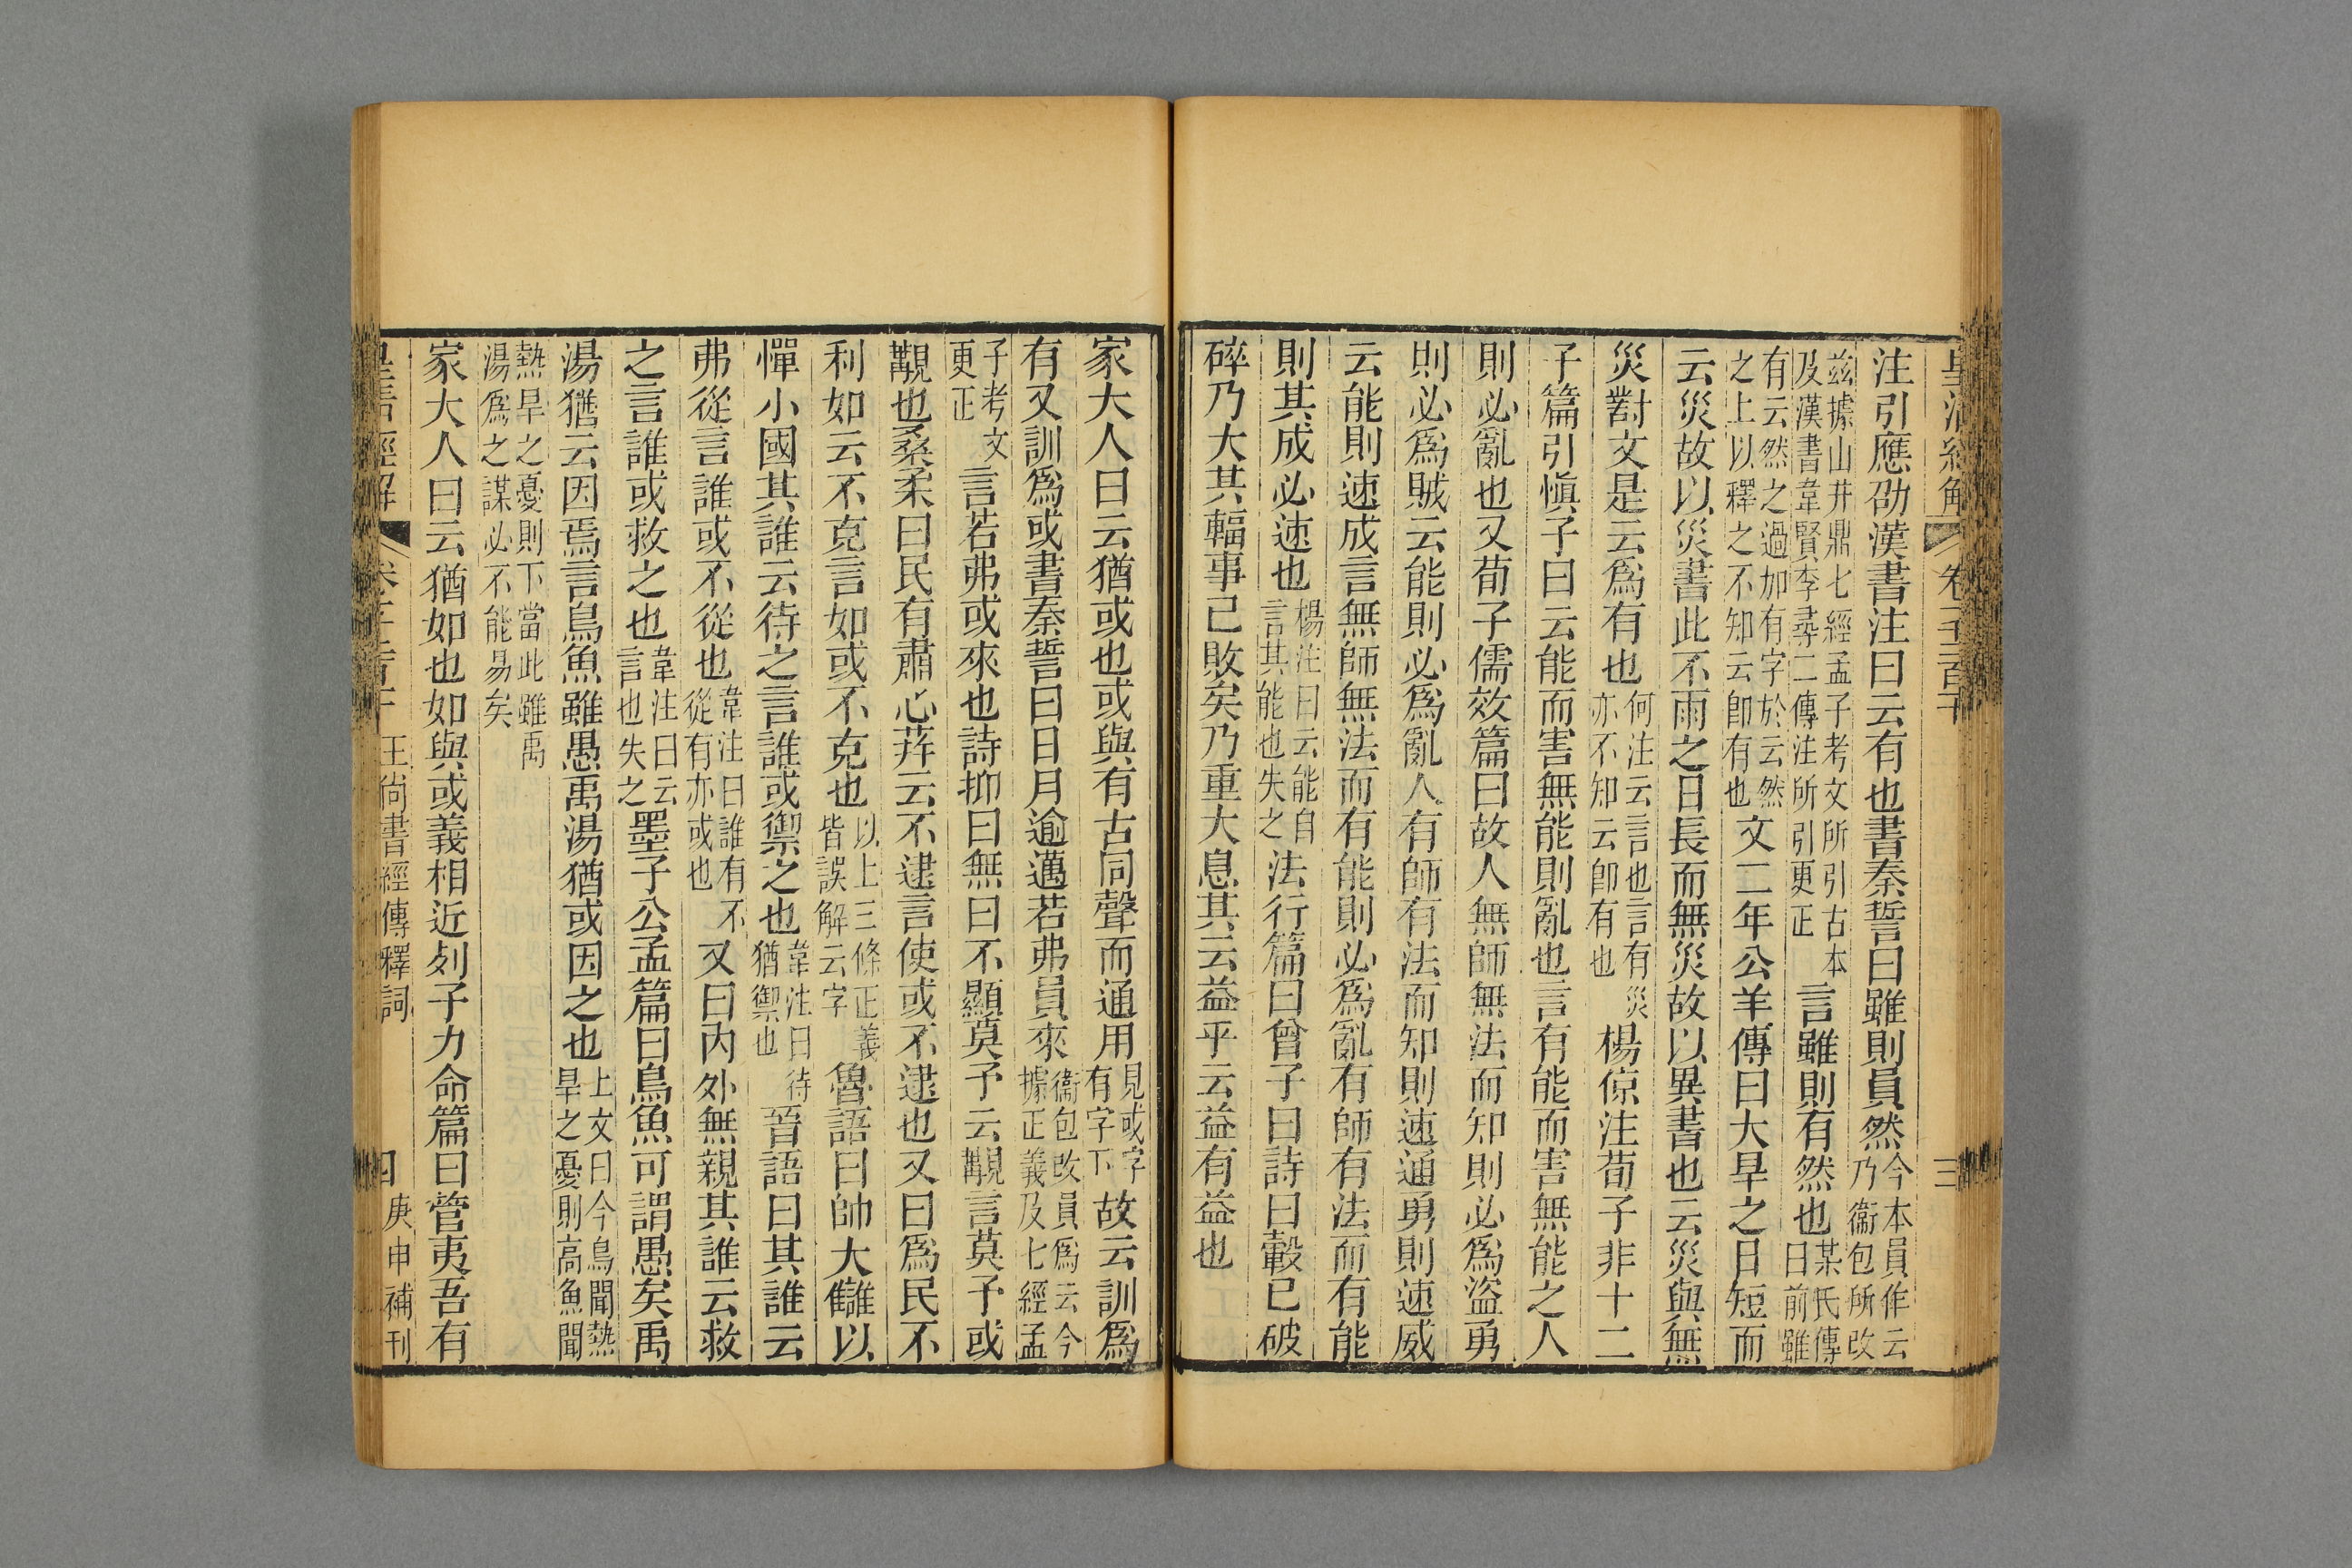 皇清經解 卷千二百十 三
注引應劭漢書注曰云有也書秦誓曰雖則員然今本員作云乃衞包所改
茲據山井鼎七經孟子考文所引古本及漢書韋賢李尋二傳注所引更正言雖則有然也某氏傳曰前雖
有云然之過加有字於云然之上以釋之不知云卽有也文二年公羊傳曰大旱之日短而
云災故以災書此不雨之日長而無災故以異書也云災與無
災對文是云爲有也何注云言也言有災亦不知云卽有也楊倞注荀子非十二
子篇引愼子曰云能而害無能則亂也言有能而害無能之人
則必亂也又荀子儒效篇曰故人無師無法而知則必爲盜勇
則必爲賊云能則必爲亂人有師有法而知則速通勇則速威
云能則速成言無師無法而有能則必爲亂有師有法而有能
則其成必速也楊注曰云能自言其能也失之法行篇曰曾子曰詩曰轂已破
碎乃大其輻事已敗矣乃重大息其云益乎云益有益也
家大人曰云猶或也或與有古同聲而通用見或字有字下故云訓爲
有又訓爲或書秦誓曰日月逾邁若弗員來衞包改員爲云今據正義及七經孟
子考文更正言若弗或來也詩抑曰無曰不顯莫予云覯言莫予或
覯也桑柔曰民有肅心荓云不逮言使或不逮也又曰爲民不
利如云不克言如或不克也以上三條正義皆誤解云字魯語曰帥大讎以
憚小國其誰云待之言誰或禦之也韋注曰待猶禦也晉語曰其誰云
弗從言誰或不從也韋注曰誰有不從有亦或也又曰內外無親其誰云救
之言誰或救之也韋注曰云言也失之墨子公孟篇曰鳥魚可謂愚矣禹
湯猶云因焉言鳥魚雖愚禹湯猶或因之也上文曰今鳥聞熱旱之憂則高魚聞
熱旱之憂則下當此雖禹湯爲之謀必不能易矣
家大人曰云猶如也如與或義相近列子力命篇曰管夷吾有
皇清經解 卷千二百十 王尙書經傳釋詞 四 庚申補刊